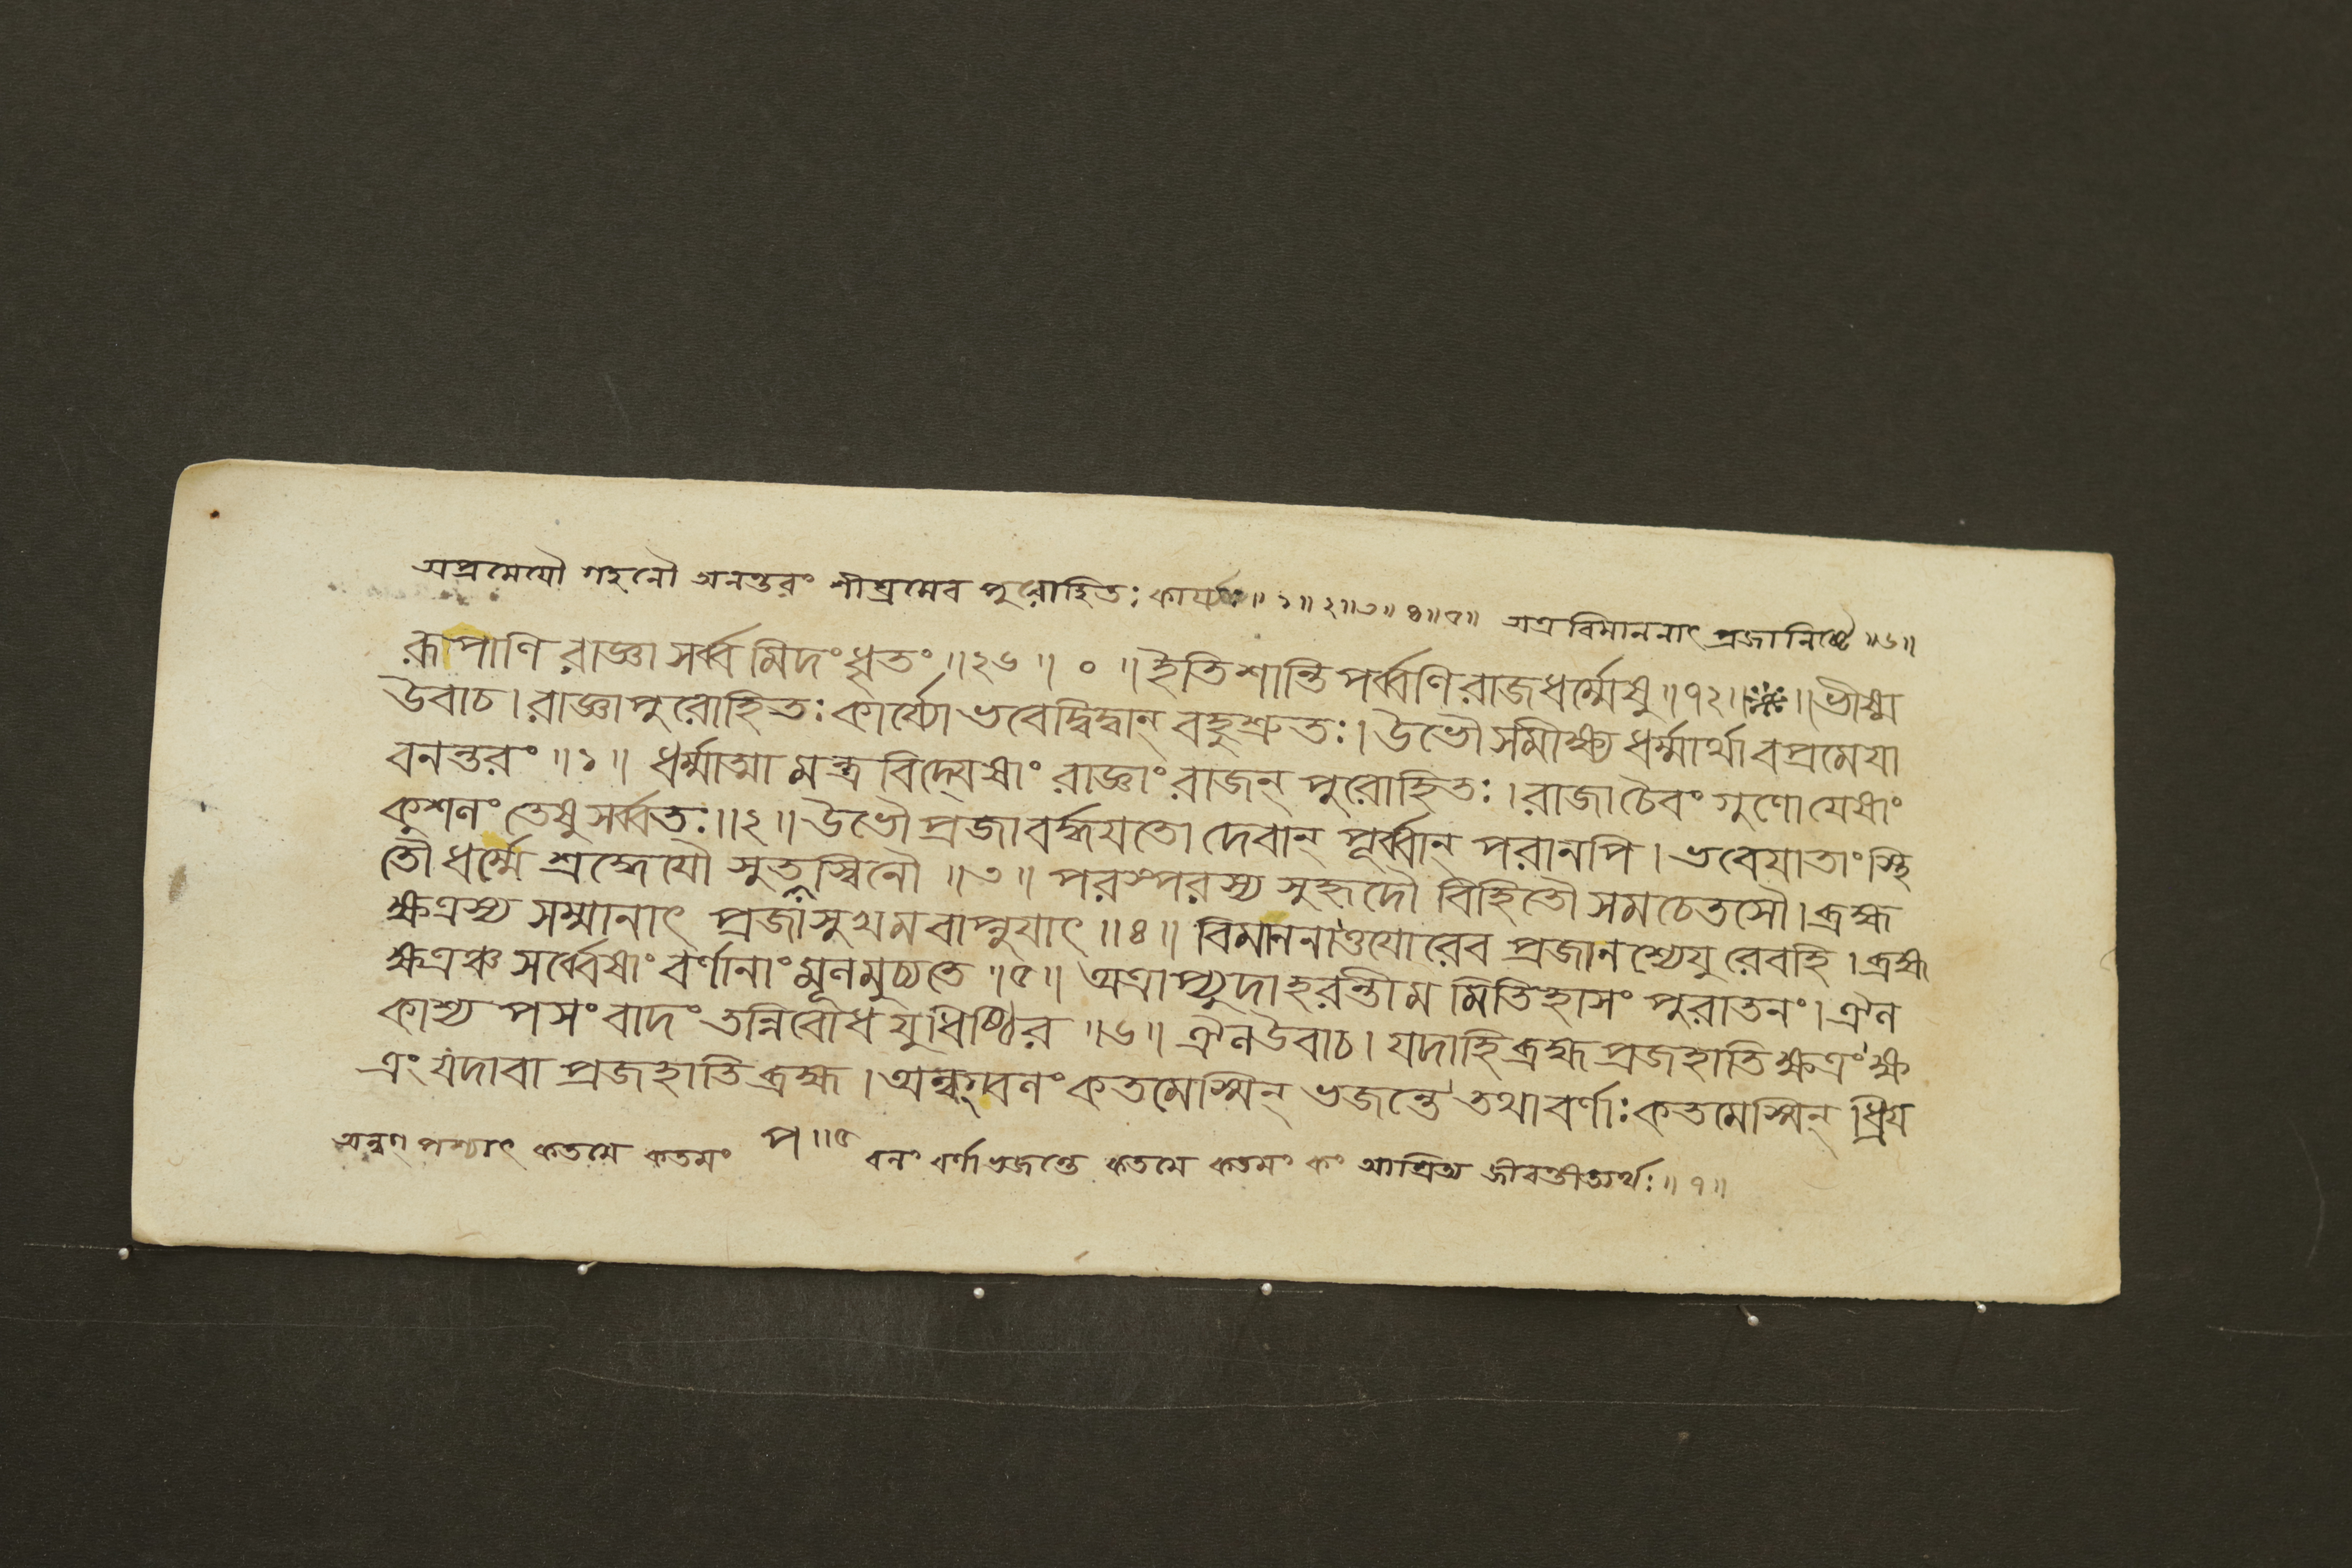 অপ্রমেযৌ গহনৌ অনন্তরং শীঘ্রমেব পুরোহিতঃ কার্য্যঃ॥ ১॥ ২॥ ৩॥ ৪॥ ৫॥ অত্র বিমাননাৎ প্রজানিষ্টে ॥৬॥
রূপাণি রাজ্ঞা সর্ব্বমিদং ধৃতং ॥২৬॥ ০ ॥ ইতি শান্তিপর্ব্বণি রাজধর্ম্মেষু ॥৭২॥ ॥ ভীষ্ম
উবাচ। রাজ্ঞা পুরোহিতঃ কার্য্যো ভবেদ্বিদ্বান্ বহুশ্রুতঃ। উভৌ সমীক্ষ্য ধর্ম্মার্থাবপ্রমেযা
বনন্তরং ॥১॥ ধর্ম্মাত্মা মন্ত্রবিদ্যেষাং রাজ্ঞাং রাজন্ পুরোহিতঃ। রাজা চৈবং গুণো যেষাং
কুশলং তেষু সর্ব্বতঃ॥২॥ উভৌ প্রজা বর্দ্ধযতো দেবান্ পূর্ব্বান্ পরানপি। ভবেযাতাং স্থি
তৌ ধর্ম্মে শ্রদ্ধেযৌ সুতপস্বিনৌ ॥৩॥ পরস্পরস্য সুহৃদৌ বিহিতৌ সমচেতসৌ। ব্রহ্ম
ক্ষত্রস্য সম্মানাৎ প্রজা সুখমবাপ্নুযাৎ ॥৪॥ বিমাননাত্তযোরেব প্রজা নশ্যেযুরেবহি। ব্রহ্ম
ক্ষত্রঞ্চ সর্ব্বেষাং বর্ণানাং মূলমুচ্যতে ॥৫॥ অত্রাপ্যুদাহরন্তীমমিতিহাসং পুরাতনং। ঐল
কাশ্যপসংবাদং তন্নিবোধ যুধিষ্ঠির ॥৬॥ ঐল উবাচ। যদাহি ব্রহ্ম প্রজহাতি ক্ষত্রং ক্ষ
ত্রং যদাবা প্রজহাতি ব্রহ্ম। অন্বগ্বলং কতমেস্মিন্ ভজন্তে তথা বর্ণাঃ কতমেস্মিন্ ধ্রিয
অন্বগ্ পশ্চাৎ কতমে কতমং প॥৫ বলং বর্ণা ভজন্তে কতমে কতমং কং আশ্রিত্য জীবন্তীত্যর্থঃ॥ ৭॥